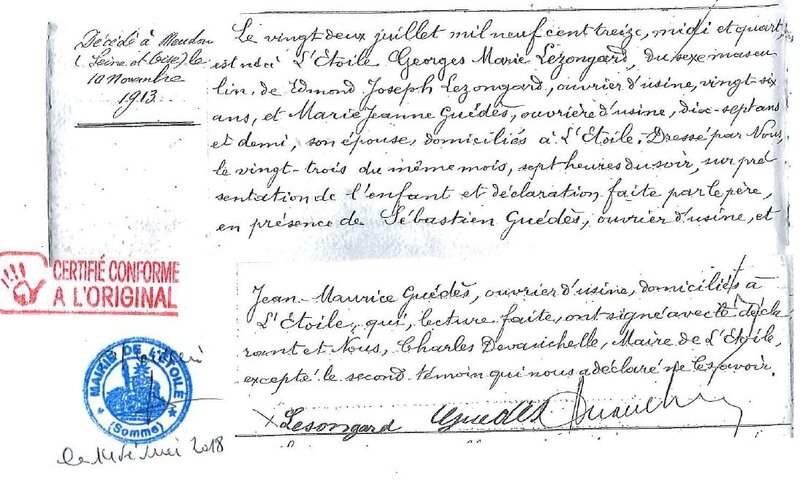 Décédé à Meudon
(Seine et Oise) le
10 Novembre
1913
Le vingt deux juillet mil neuf cent treize, midi et quart
est né à L'Etoile Georges Marie Lezongard, du sexe mascu
lin, de Edmond Joseph Lezongard, ouvrier d'usine, vingt-six
ans, et Marie Jeanne Guédès, ouvrière d'usine, dix-sept ans
et demi, son épouse, domiciliés à L'Etoile. Dressé par Nous,
le vingt-trois du même mois, sept heures du soir, sur pré
sentation de l'enfant et déclaration faite par le père,
en présence de Sébastien Guédès, ouvrier d'usine, et
Jean-Maurice Guédès, ouvrier d'usine, domiciliés à
L'Etoile, qui, lecture faite, ont signé avec le décla
rant et Nous, Charles Devauchelle, Maire de L'Etoile,
excepté le second témoin qui nous a déclaré ne le savoir.
Lesongard Guedes
CERTIFIÉ CONFORME
A L'ORIGINAL
MAIRIE DE L'ETOILE
(Somme)
le 14 Mai 2018